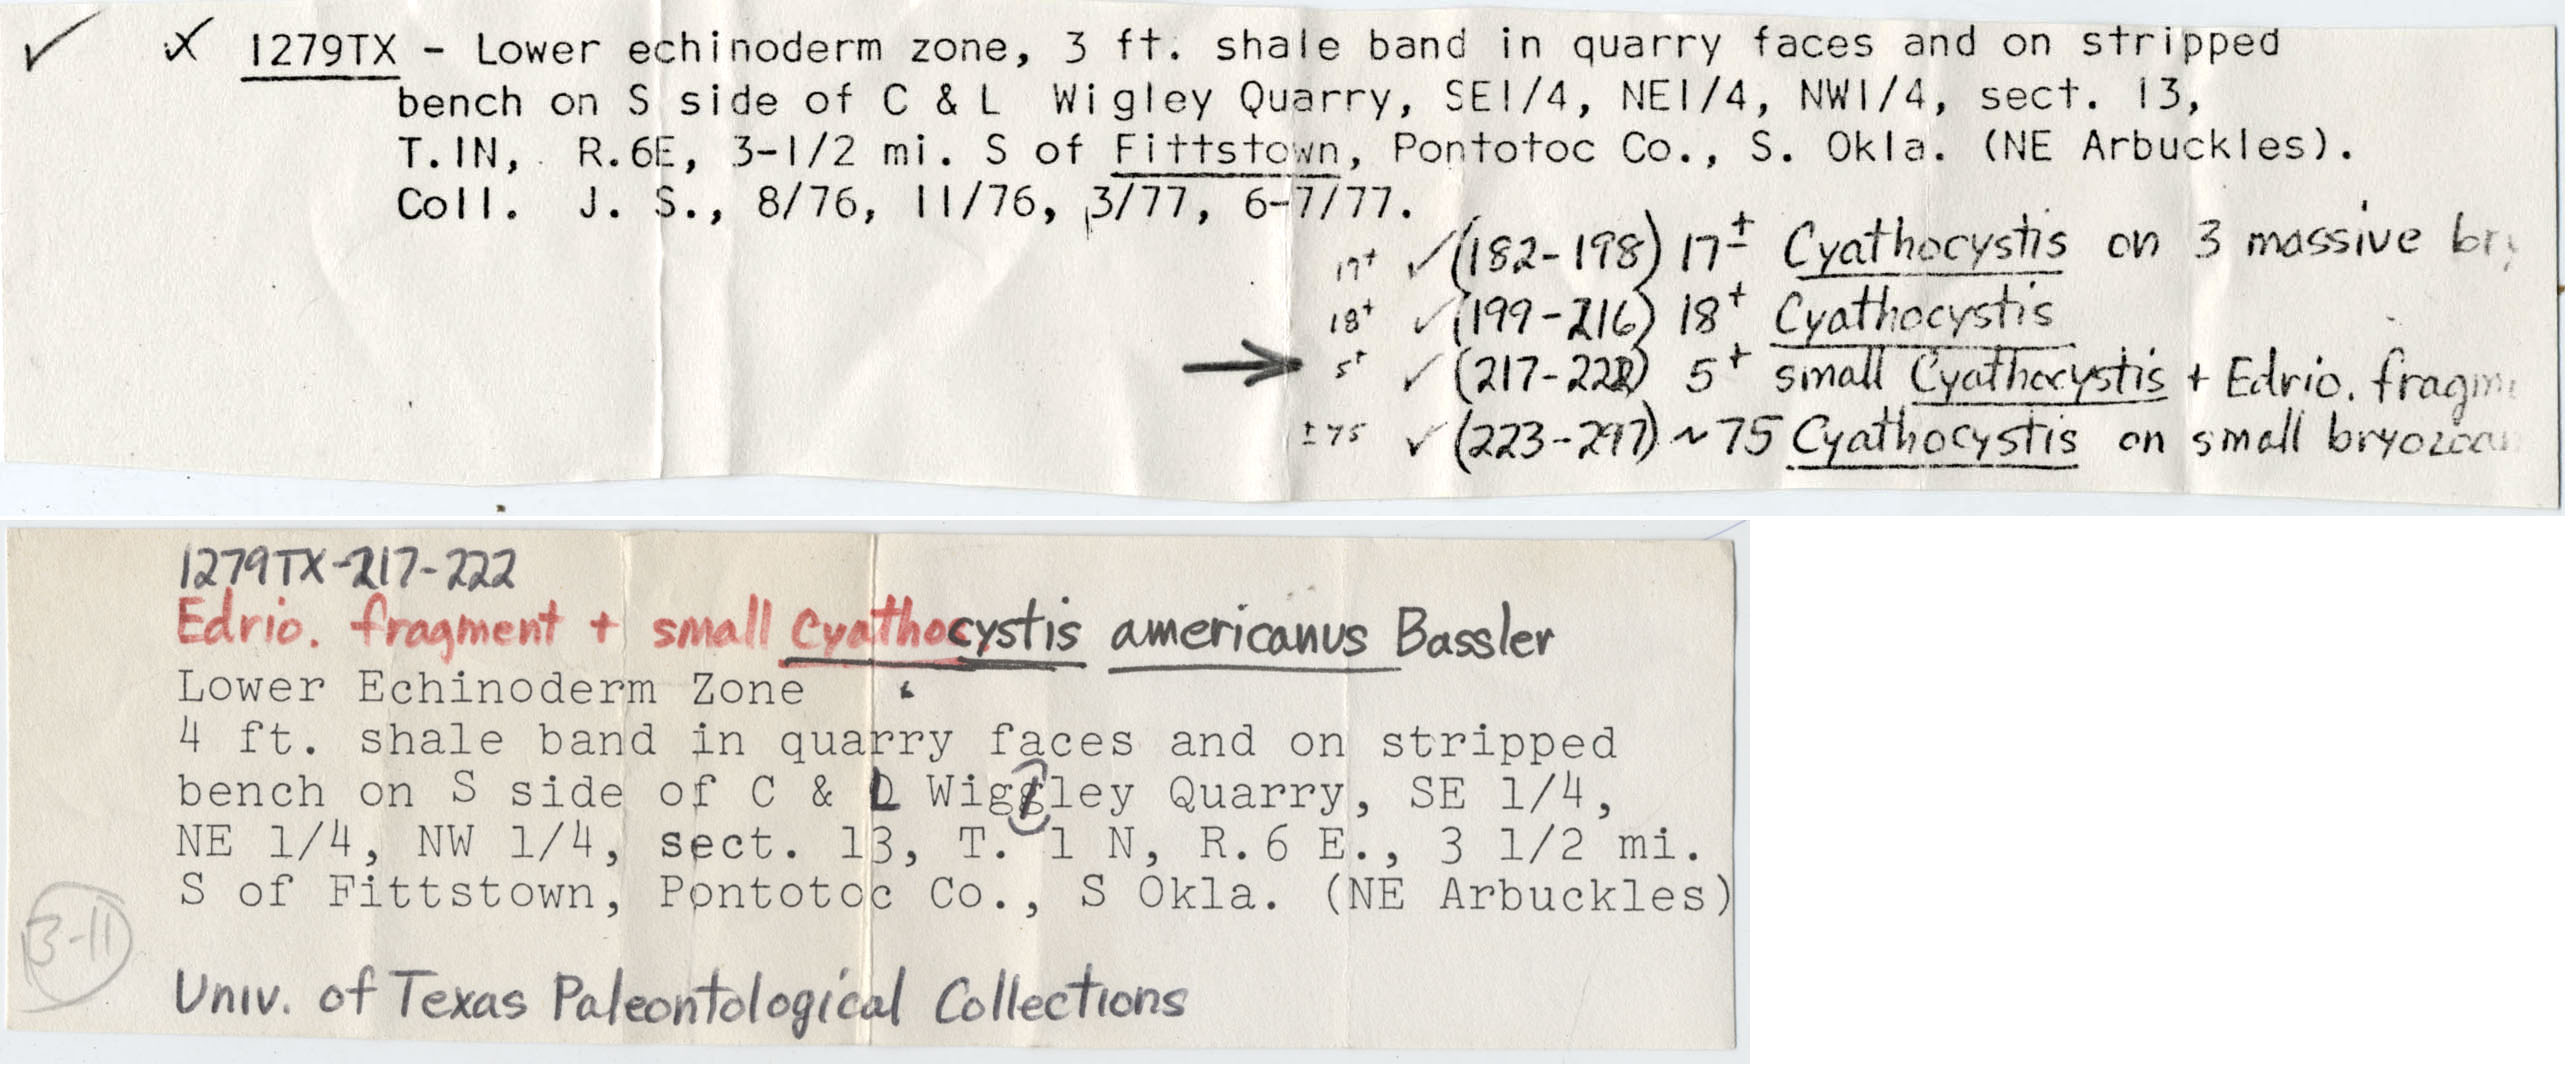 ✓ X 1279TX - Lower echinoderm zone, 3 ft. shale band in quarry faces and on stripped
bench on S side of C & L Wigley Quarry, SE1/4, NE1/4, NW1/4, sect. 13,
T.1N, R.6E, 3-1/2 mi. S of Fittstown, Pontotoc Co., S. Okla. (NE Arbuckles).
Coll. J. S., 8/76, 11/76, 3/77, 6-7/77.
17+ ✓ (182-198) 17± Cyathocystis on 3 massive
18+ ✓ (199-216) 18+ Cyathocystis
→ 5+ ✓ (217-222) 5+ small Cyathocystis + Edrio.
±75 ✓ (223-297) ~75 Cyathocystis on small
1279TX-217-222
Edrio. fragment + small Cyathocystis americanus Bassler
Lower Echinoderm Zone
4 ft. shale band in quarry faces and on stripped
bench on S side of C & L Wiggley Quarry, SE 1/4,
NE 1/4, NW 1/4, sect. 13, T. 1 N, R.6 E., 3 1/2 mi.
S of Fittstown, Pontotoc Co., S Okla. (NE Arbuckles)
3-11
Univ. of Texas Paleontological Collections